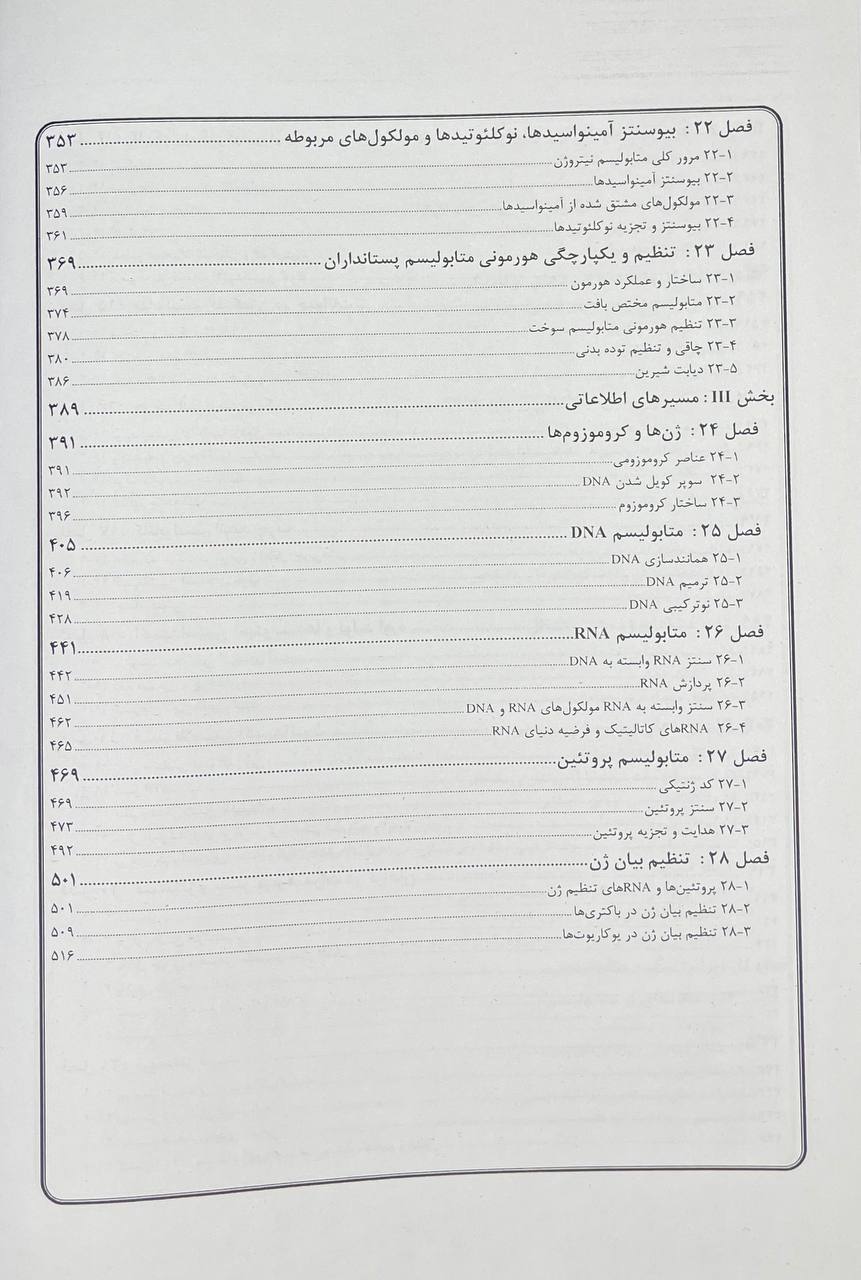 فصل ۲۲: بیوسنتز آمینواسیدها، نوکلئوتیدها و مولکول‌های مربوطه ........ ۳۵۳
۲۲-۱ مرور کلی متابولیسم نیتروژن ........ ۳۵۳
۲۲-۲ بیوسنتز آمینواسیدها ........ ۳۵۶
۲۲-۳ مولکول‌های مشتق شده از آمینواسیدها ........ ۳۵۹
۲۲-۴ بیوسنتز و تجزیه نوکلئوتیدها ........ ۳۶۱
فصل ۲۳: تنظیم و یکپارچگی هورمونی متابولیسم پستانداران ........ ۳۶۹
۲۳-۱ ساختار و عملکرد هورمون ........ ۳۶۹
۲۳-۲ متابولیسم مختص بافت ........ ۳۷۴
۲۳-۳ تنظیم هورمونی متابولیسم سوخت ........ ۳۷۸
۲۳-۴ چاقی و تنظیم توده بدنی ........ ۳۸۰
۲۳-۵ دیابت شیرین ........ ۳۸۶
بخش III: مسیرهای اطلاعاتی ........ ۳۸۹
فصل ۲۴: ژن‌ها و کروموزوم‌ها ........ ۳۹۱
۲۴-۱ عناصر کروموزومی ........ ۳۹۱
۲۴-۲ سوپر کویل شدن DNA ........ ۳۹۲
۲۴-۳ ساختار کروموزوم ........ ۳۹۶
فصل ۲۵: متابولیسم DNA ........ ۴۰۵
۲۵-۱ همانندسازی DNA ........ ۴۰۶
۲۵-۲ ترمیم DNA ........ ۴۱۹
۲۵-۳ نوترکیبی DNA ........ ۴۲۸
فصل ۲۶: متابولیسم RNA ........ ۴۴۱
۲۶-۱ سنتز RNA وابسته به DNA ........ ۴۴۲
۲۶-۲ پردازش RNA ........ ۴۵۱
۲۶-۳ سنتز وابسته به RNA مولکول‌های RNA و DNA ........ ۴۶۲
۲۶-۴ RNAهای کاتالیتیک و فرضیه دنیای RNA ........ ۴۶۵
فصل ۲۷: متابولیسم پروتئین ........ ۴۶۹
۲۷-۱ کد ژنتیکی ........ ۴۶۹
۲۷-۲ سنتز پروتئین ........ ۴۷۳
۲۷-۳ هدایت و تجزیه پروتئین ........ ۴۹۲
فصل ۲۸: تنظیم بیان ژن ........ ۵۰۱
۲۸-۱ پروتئین‌ها و RNAهای تنظیم ژن ........ ۵۰۱
۲۸-۲ تنظیم بیان ژن در باکتری‌ها ........ ۵۰۹
۲۸-۳ تنظیم بیان ژن در یوکاریوت‌ها ........ ۵۱۶